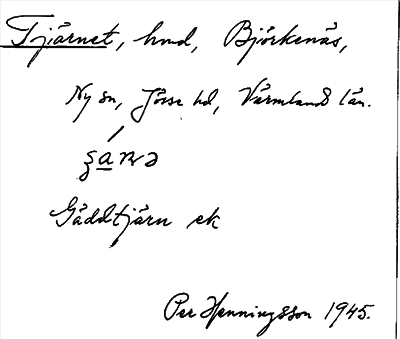 Tjärnet, hmd, Björkenäs,
Ny sn, Jösse hd, Värmlands län.
Gäddtjärn ek
Per Henningsson 1945.